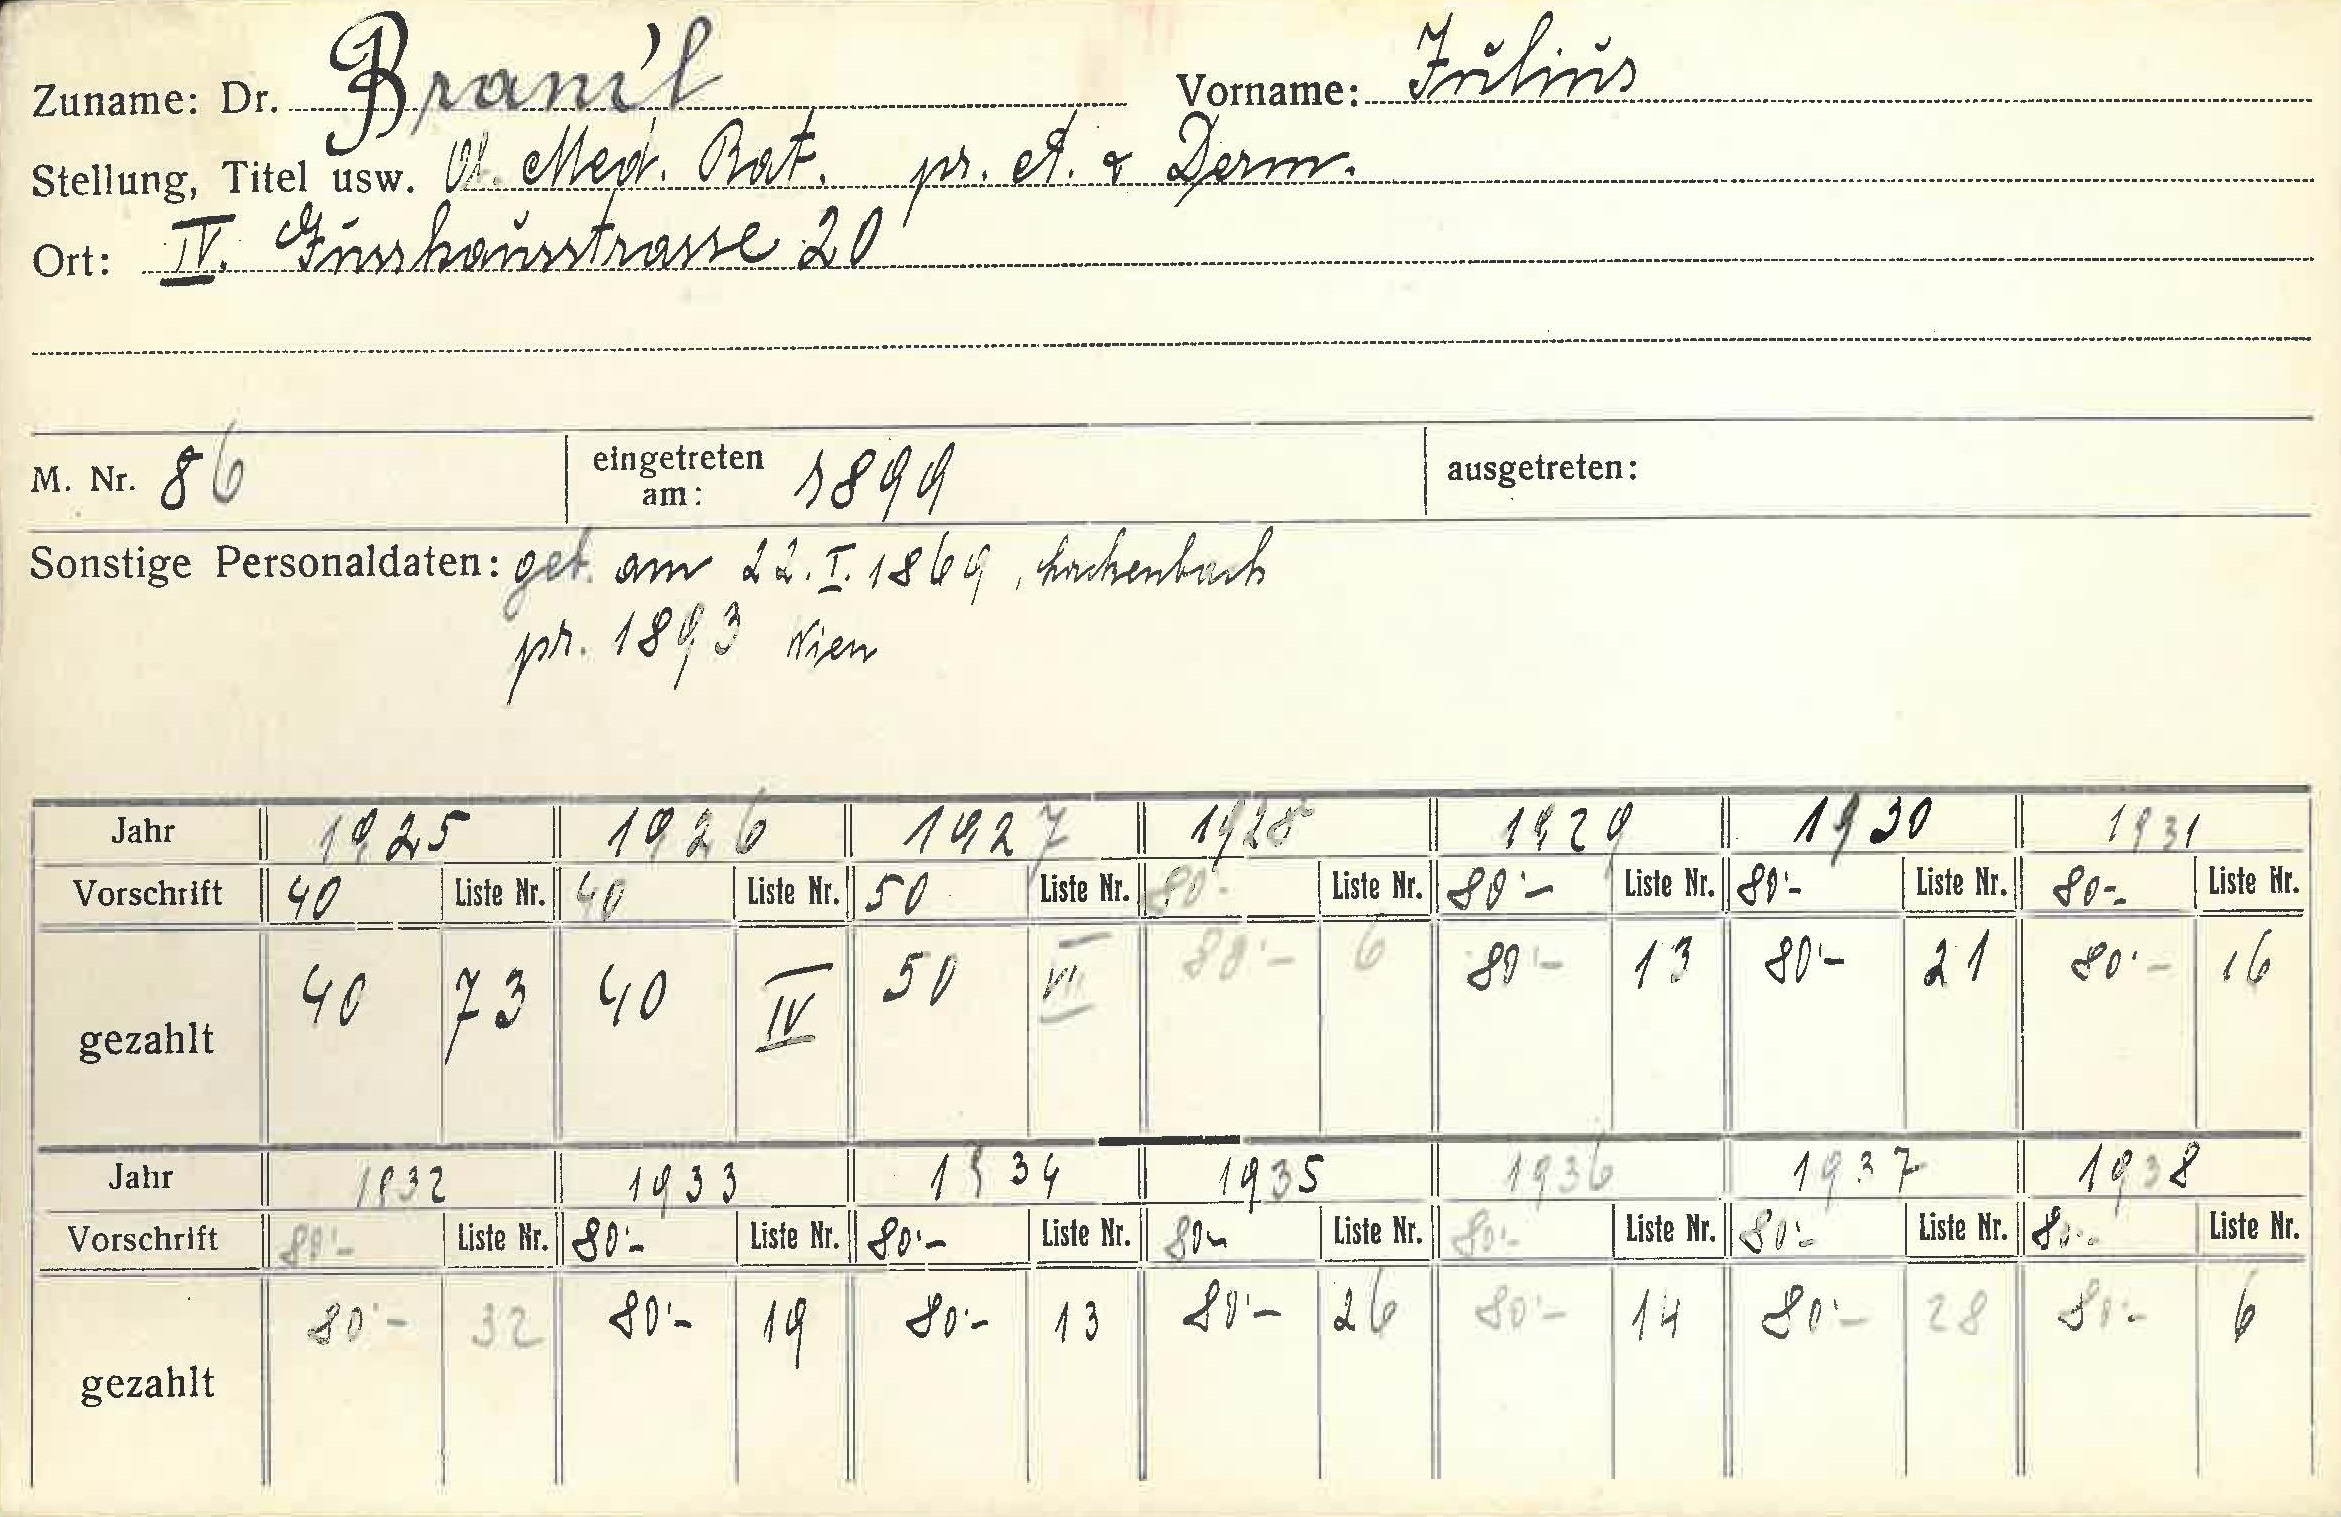 Zuname: Dr. Braníl Vorname: Julius
Stellung, Titel usw. Ob. Med. Rat. pr. A. & Derm.
Ort: IV. Gusshausstrasse 20
M. Nr. 86 eingetreten am: 1899 ausgetreten:
Sonstige Personaldaten: geb. am 22. I. 1869, Lackenbach
pr. 1893 Wien
Jahr 1925 1926 1927 1928 1929 1930 1931
Vorschrift 40 Liste Nr. 40 Liste Nr. 50 Liste Nr. 80·- Liste Nr. 80·- Liste Nr. 80·- Liste Nr. 80·- Liste Nr.
gezahlt 40 73 40 IV 50 VII 80·- 6 80·- 13 80·- 21 80·- 16
Jahr 1932 1933 1934 1935 1936 1937 1938
Vorschrift 80·- Liste Nr. 80·- Liste Nr. 80·- Liste Nr. 80·- Liste Nr. 80·- Liste Nr. 80·- Liste Nr. 80·- Liste Nr.
gezahlt 80·- 32 80·- 19 80·- 13 80·- 26 80·- 14 80·- 28 80·- 6